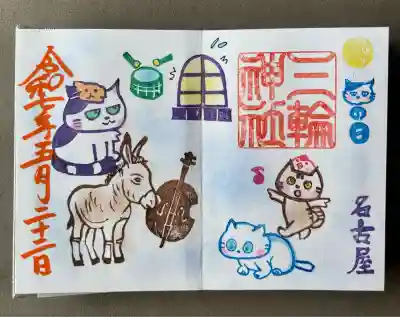 の日
名古屋
三輪
神社
令和七年五月二十二日